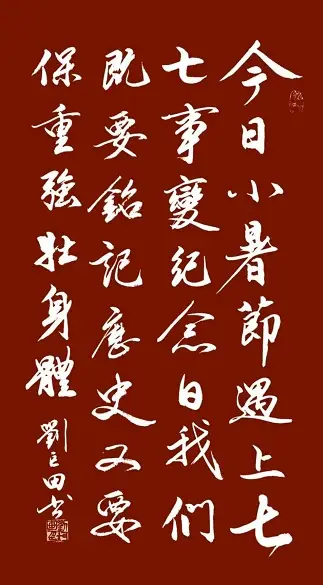 今日小暑節遇上七
七事變纪念日我們
既要銘記歷史又要
保重強壯身體
劉巨田书